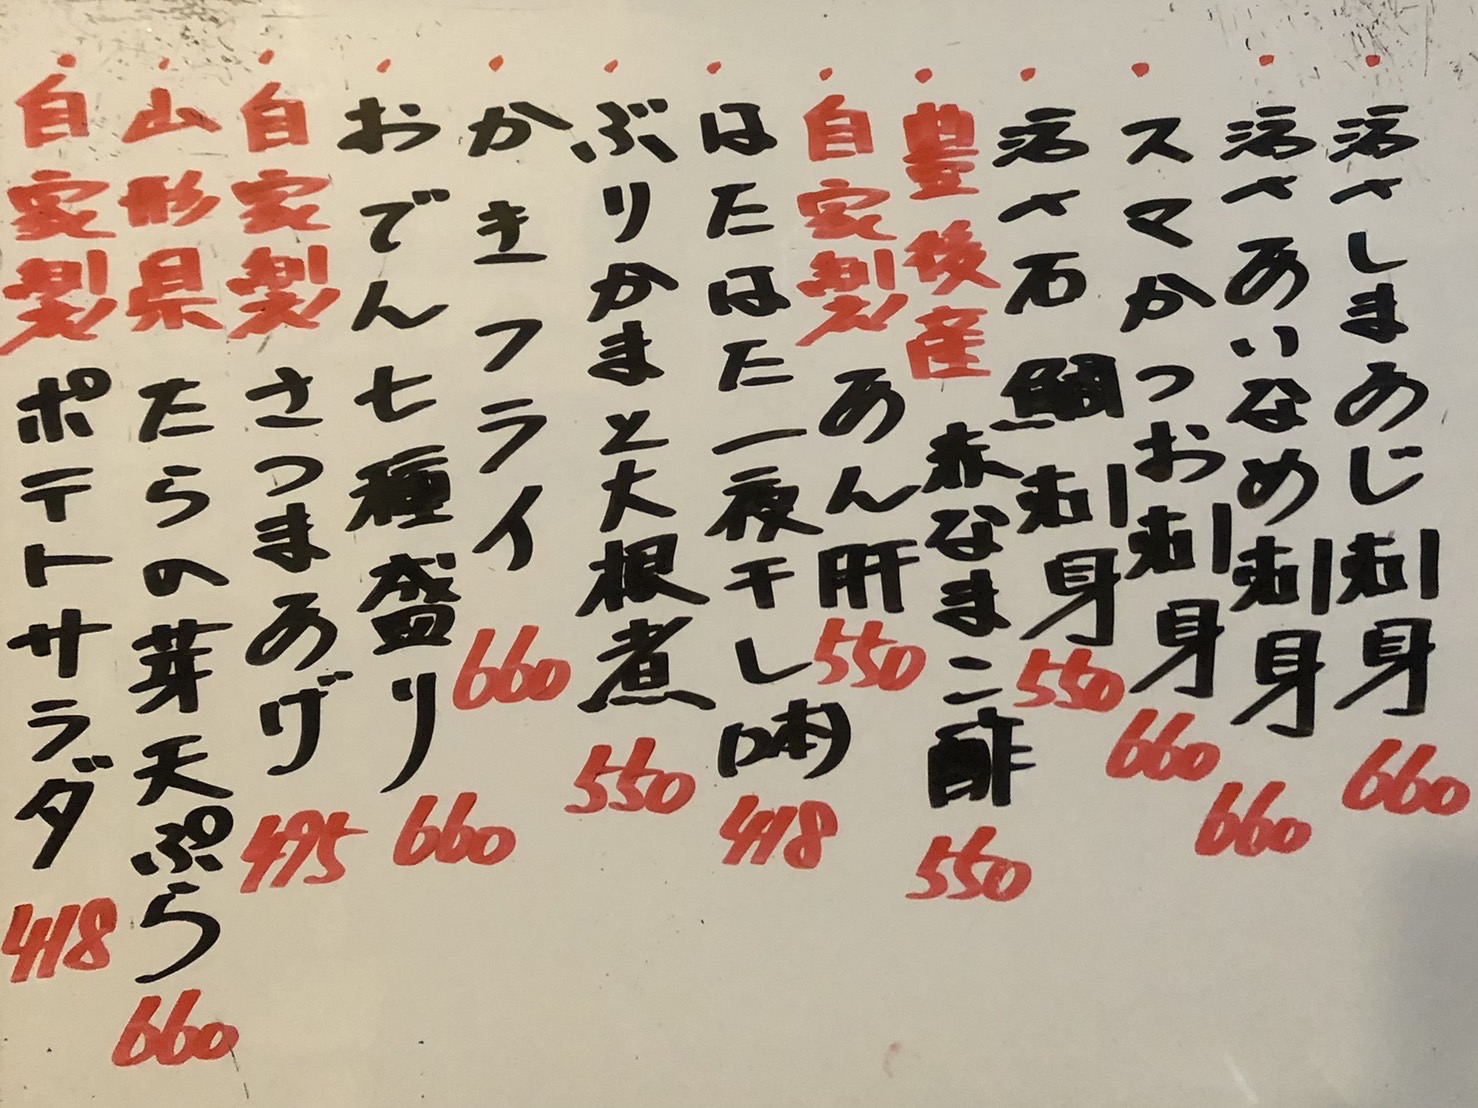 ・活〆しまあじ刺身 660
・活〆あいなめ刺身 660
・スマかつお刺身 660
・活〆石鯛刺身 550
・豊後産 赤なまこ酢 550
・自家製 あん肝 550
・はたはた一夜干し(2本) 418
・ぶりかまと大根煮 550
・かきフライ 660
・おでん七種盛り 660
・自家製 さつまあげ 495
・山形県 たらの芽天ぷら 660
・自家製 ポテトサラダ 418